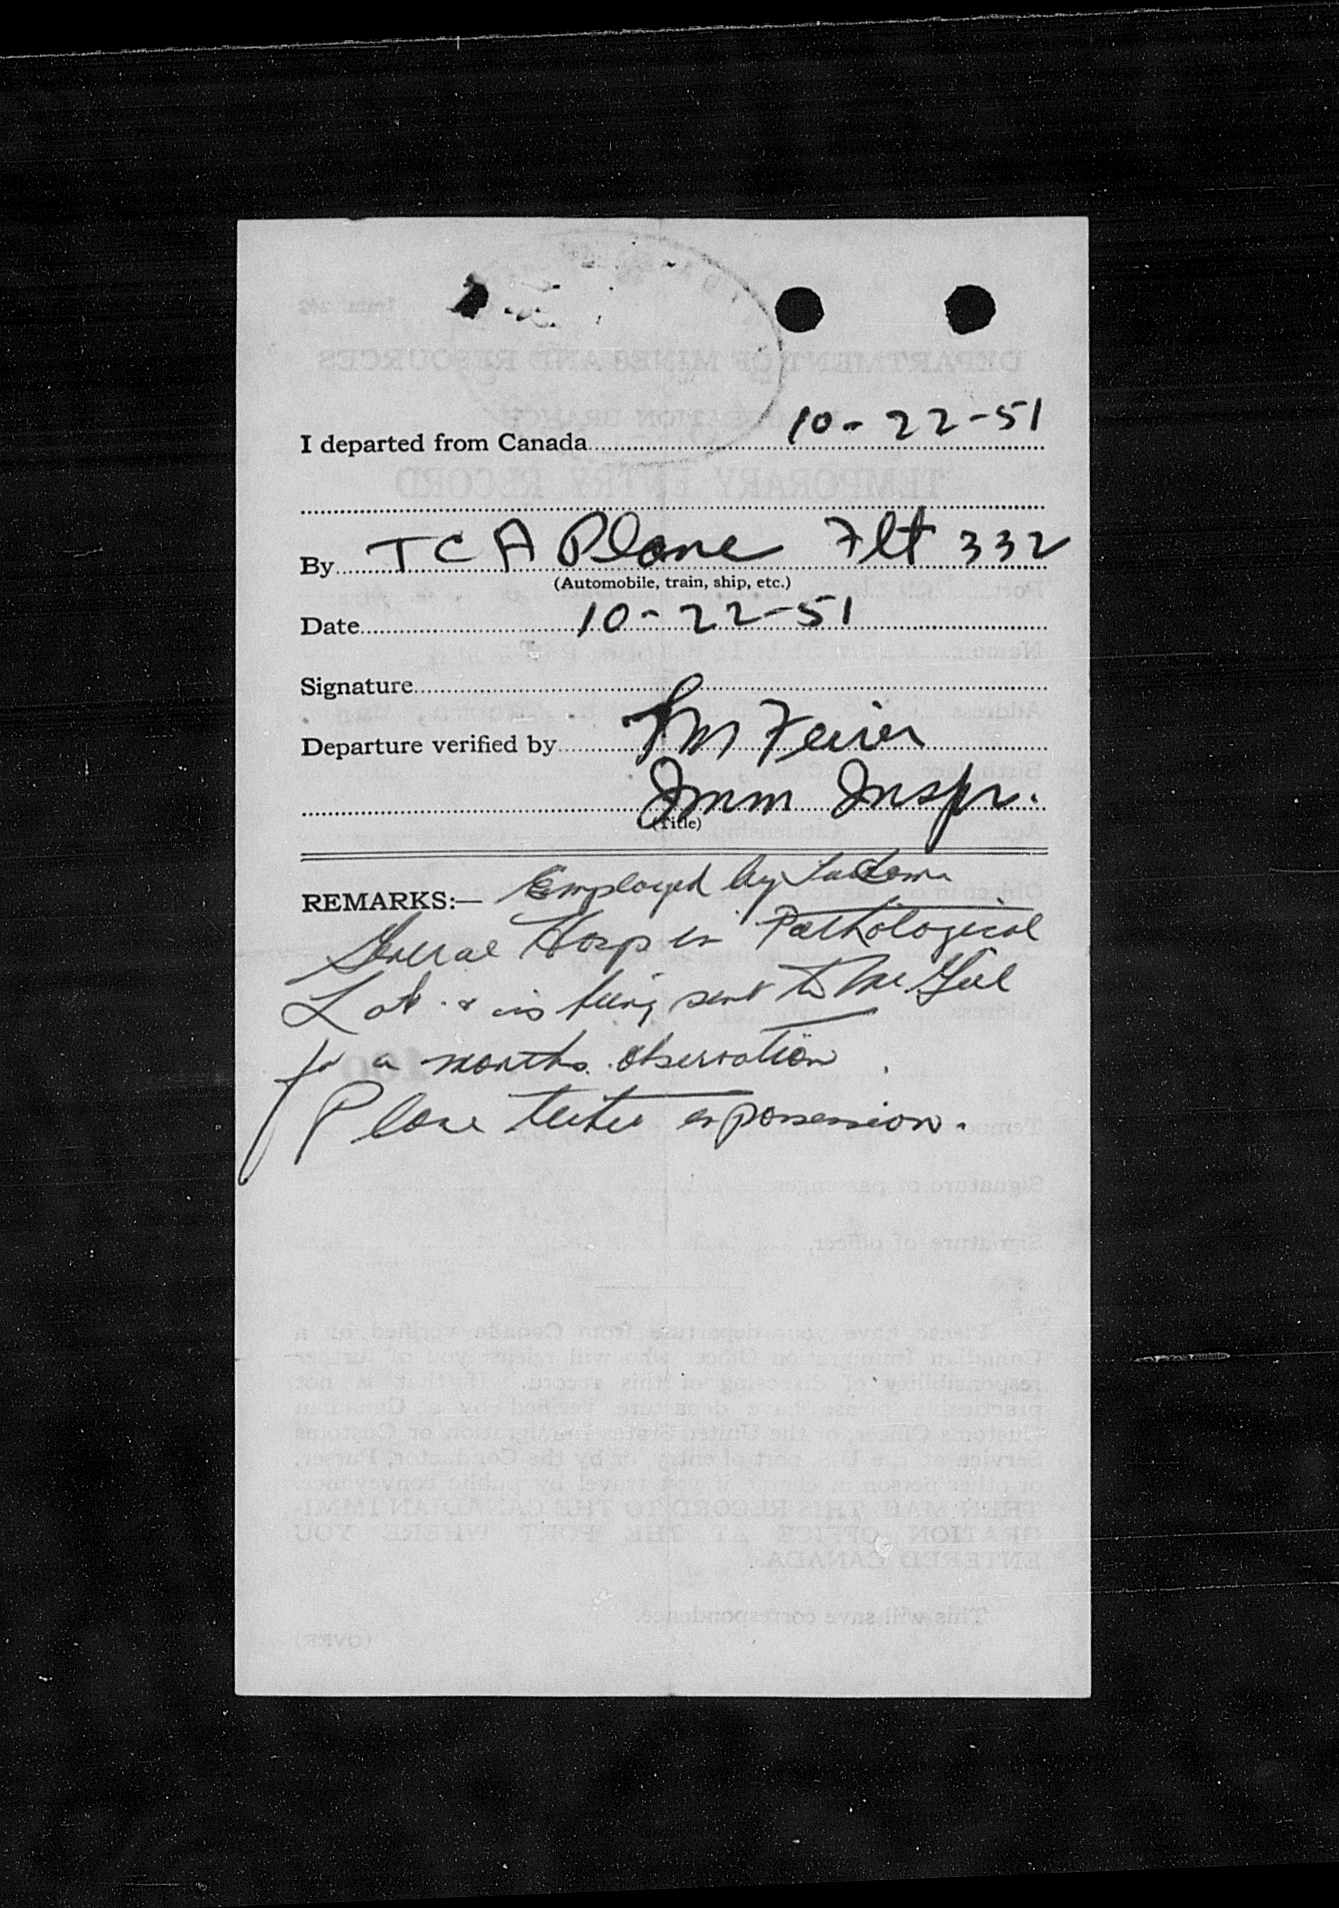 I departed from Canada 10-22-51
By TCA Plane Flt 332
(Automobile, train, ship, etc.)
Date 10-22-51
Signature
Departure verified by
Imm Inspr.
(Title)
REMARKS:— Employed by Tacoma
General Hosp in Pathological
Lab. & is being sent to McGill
for a months observation
Plane ticket in possession.